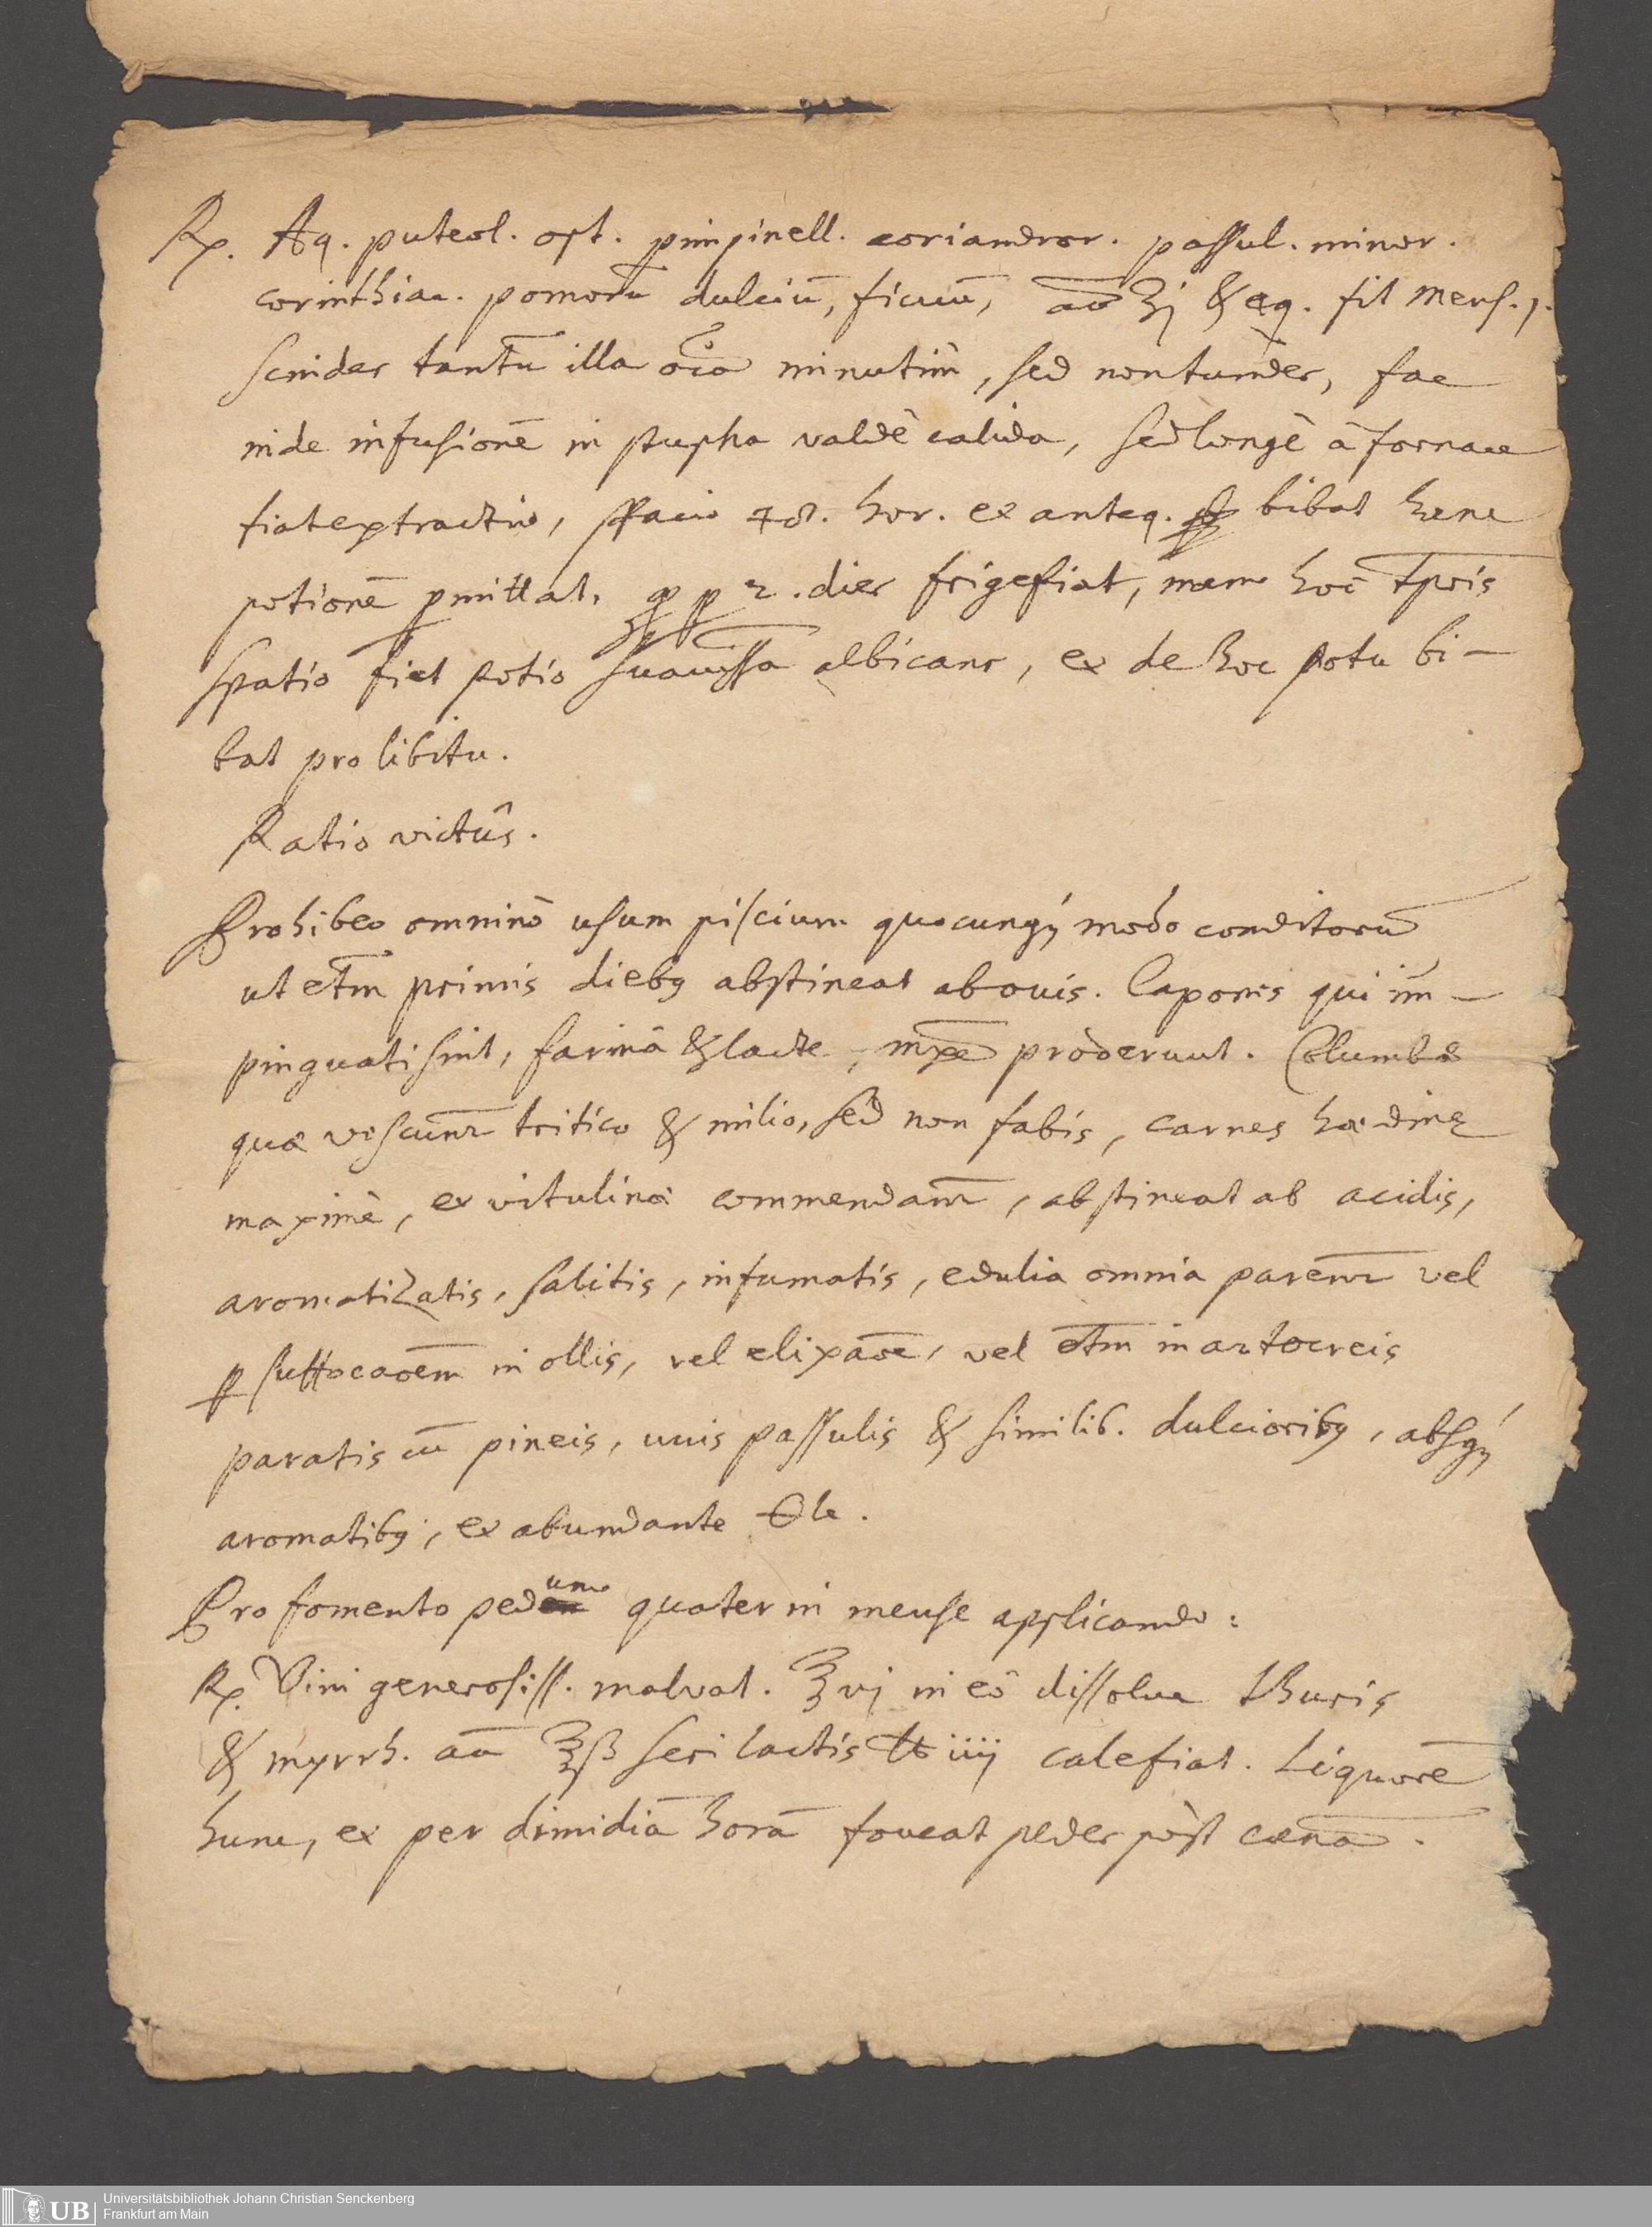 Rp. Aq. puteol. opt. pimpinell. coriandror. passul. minor.
corinthiac. pomorū dulciū, ficuū, aā ʒj & aq. fit Mens. 1.
Scindes tantū illa oīa minutim̄, sed non tundes, fac
inde infusionē in stupha valdè calida, sed longè à fornace
fiat extractio, spacio 48. hor. et anteq. bibat hanc
potionē ꝑmittat, ꝙ ꝑ 2. dies frigefiat, nam hoc tꝑis
spatio fiet potio suauiss̄a albicans, et de hoc potu bi-
bat pro libitu.
Ratio victûs.
Prohibeo omninò usum piscium quocunqꝫ modo conditorū
ut etm̄ primis diebꝰ abstineat ab ouis. Capones qui im̄-
pinguati sint, farinâ & lacte, mxē proderunt. Columbæ
quæ vescunr̄ tritico & milio, sed non fabis, carnes hœdinę
maximè, et vitulinæ commendanr̄, abstineat ab acidis,
aromatizatis, salitis, infumatis, edulia omnia parenr̄ vel
ꝑ suffocaōem in ollis, vel elixaōe, vel etm̄ in artocreis
paratis cū pineis, uuis passulis & similib. dulcioribꝰ, absqꝫ
aromatibꝰ, et abundante sale.
Pro fomento pedum quater in mense applicando:
Rp. Vini generosiss. maluat. ℥vj in eô dissolue thuris
& myrrh. aā ℥ß seri lactis ℔ iiij calefiat. Liquorē
hunc, et per dimidiā horā foueat pedes pòst cœnā.
Universitätsbibliothek Johann Christian Senckenberg
Frankfurt am Main
UB